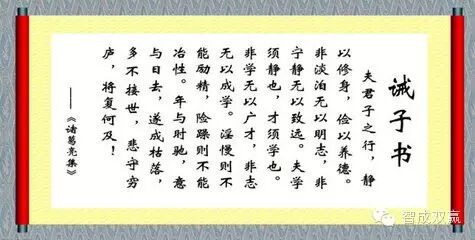 诫子书
夫君子之行，静
以修身，俭以养德。
非淡泊无以明志，非
宁静无以致远。夫学
须静也，才须学也。
非学无以广才，非志
无以成学。淫慢则不
能励精，险躁则不能
冶性。年与时驰，意
与日去，遂成枯落，
多不接世，悲守穷
庐，将复何及！
——《诸葛亮集》
智成双赢